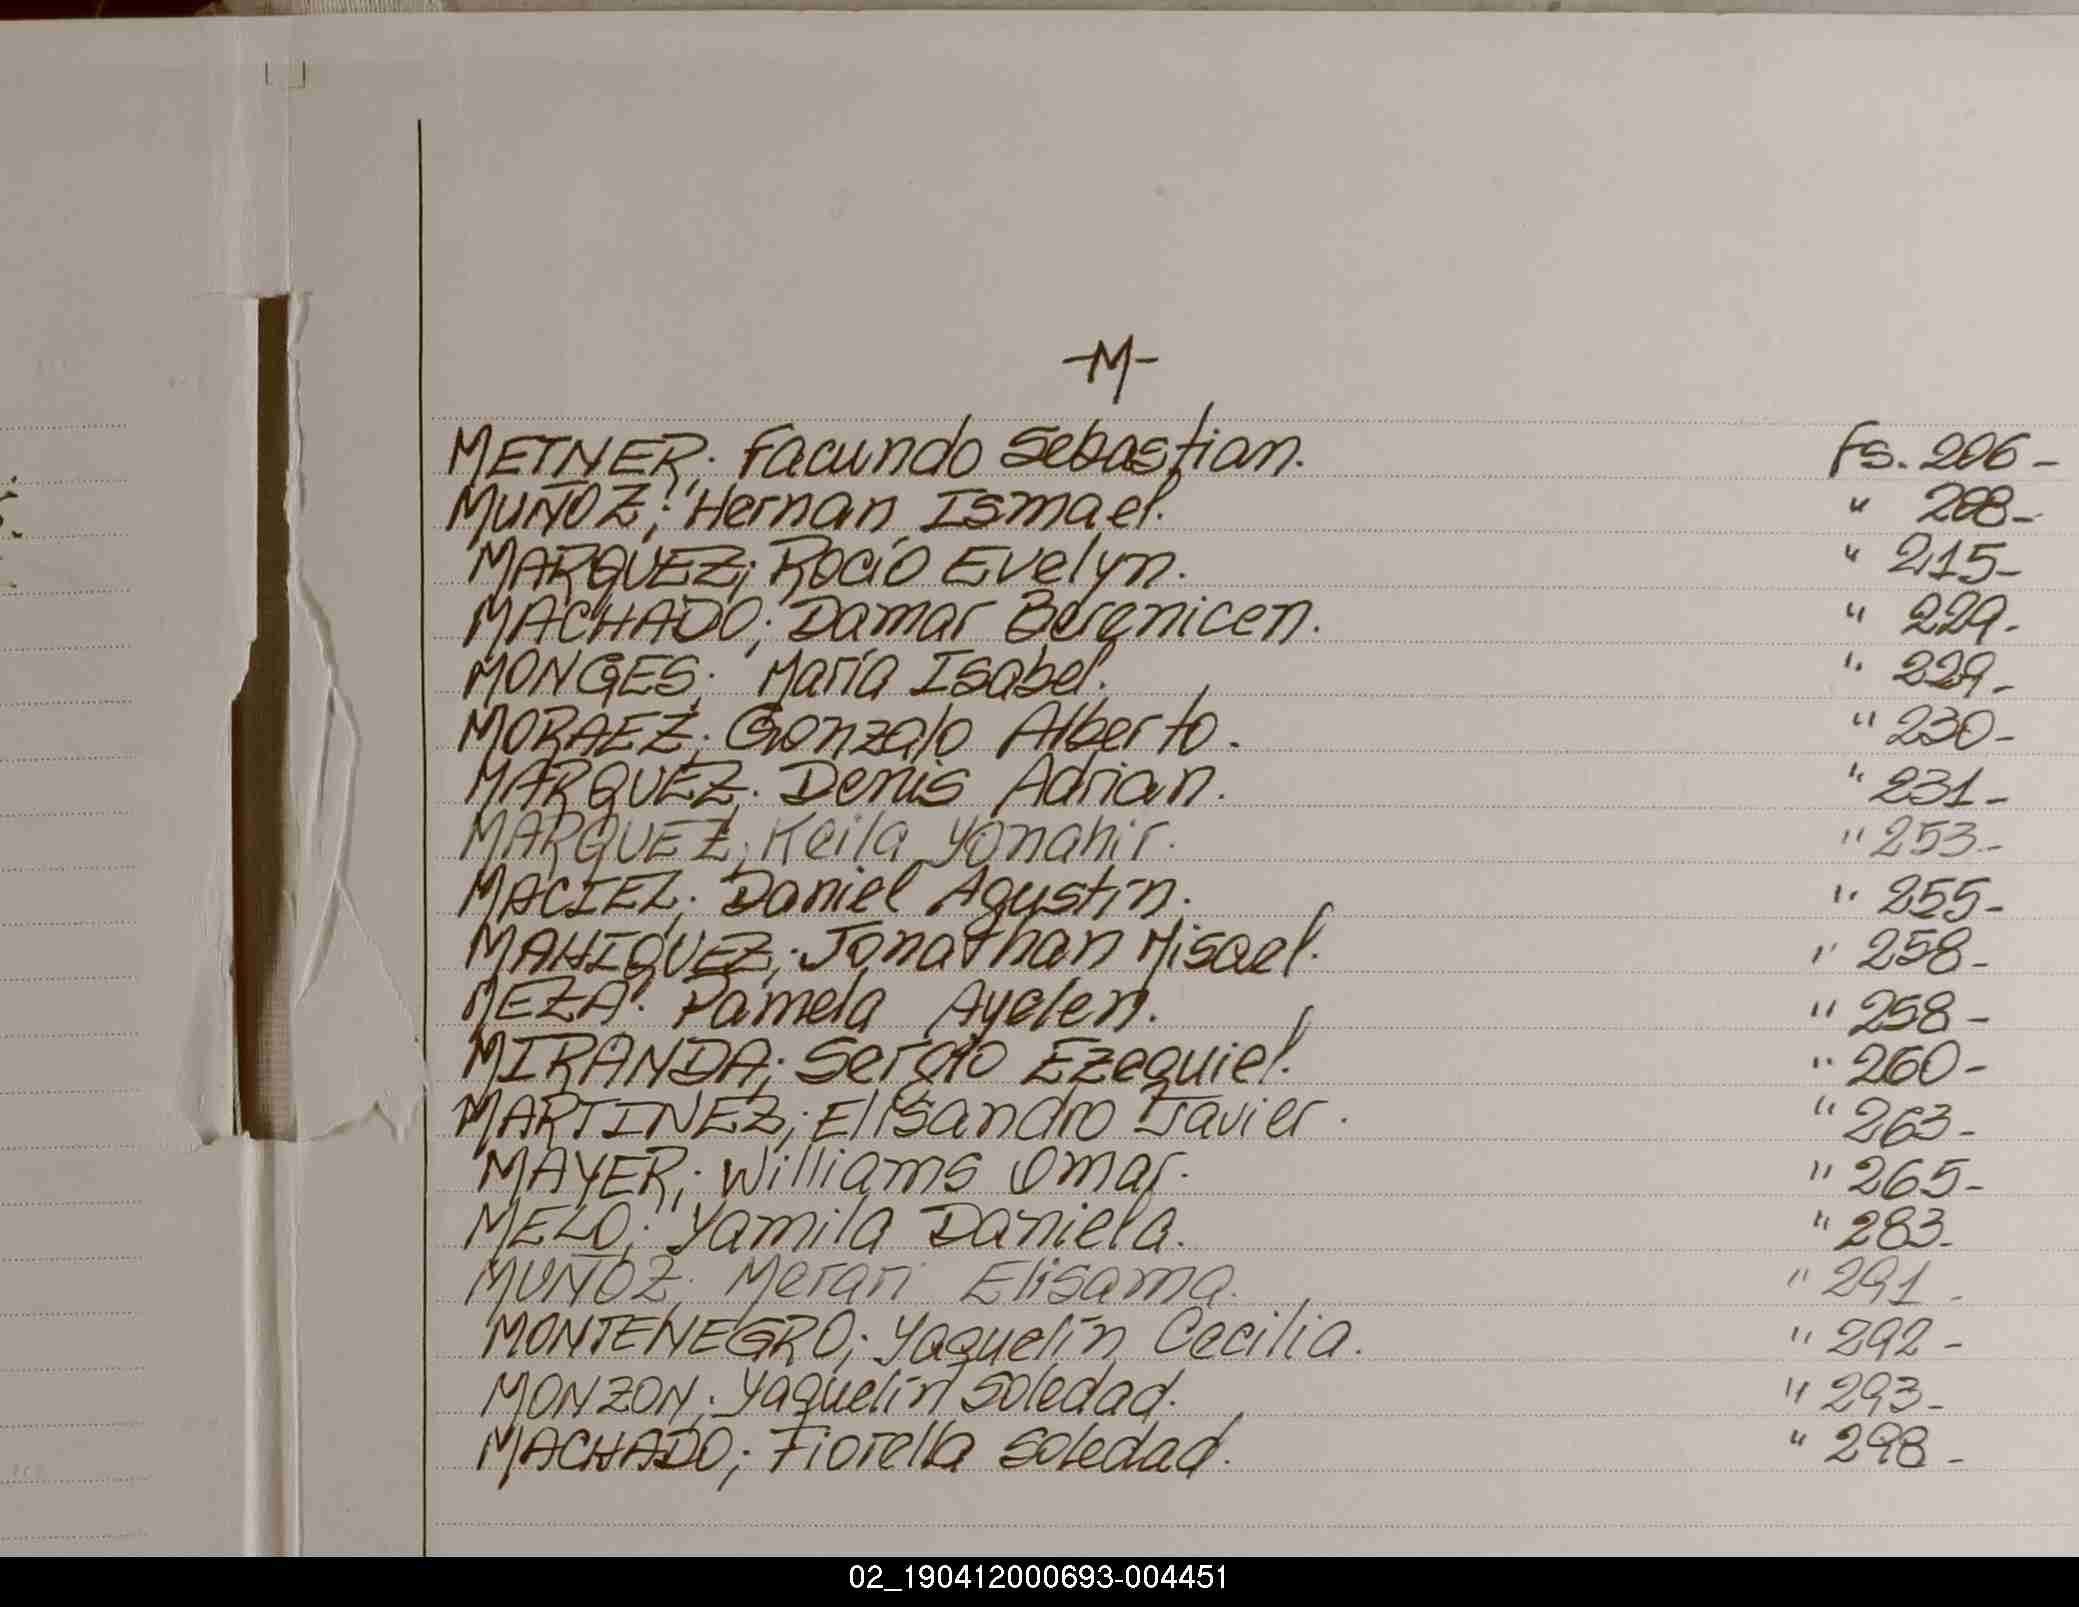 -M-
METNER. Facundo Sebastian. Fs. 206-
MUÑOZ; Hernan Ismael. " 208-
MARQUEZ; Rocío Evelyn. " 215-
MACHADO; Damar Berenicen. " 229-
MONGES; María Isabel. " 229-
MORAEZ; Gonzalo Alberto. " 230-
MARQUEZ. Denis Adrian. " 231-
MARQUEZ; Keila Yonahir. " 253-
MACIEL; Daniel Agustín. " 255-
MAHIQUEZ; Jonathan Misael. " 258-
MEZA. Pamela Ayelen. " 258-
MIRANDA; Sergio Ezequiel. " 260-
MARTINEZ; Elisandro Javier. " 263-
MAYER; Williams Omar. " 265-
MELO; Yamila Daniela. " 283-
MUÑOZ; Merari Elisama. " 291-
MONTENEGRO; Yaquelín Cecilia. " 292-
MONZON; Yaquelín Soledad. " 293-
MACHADO; Fiorella Soledad. " 298-
02_190412000693-004451